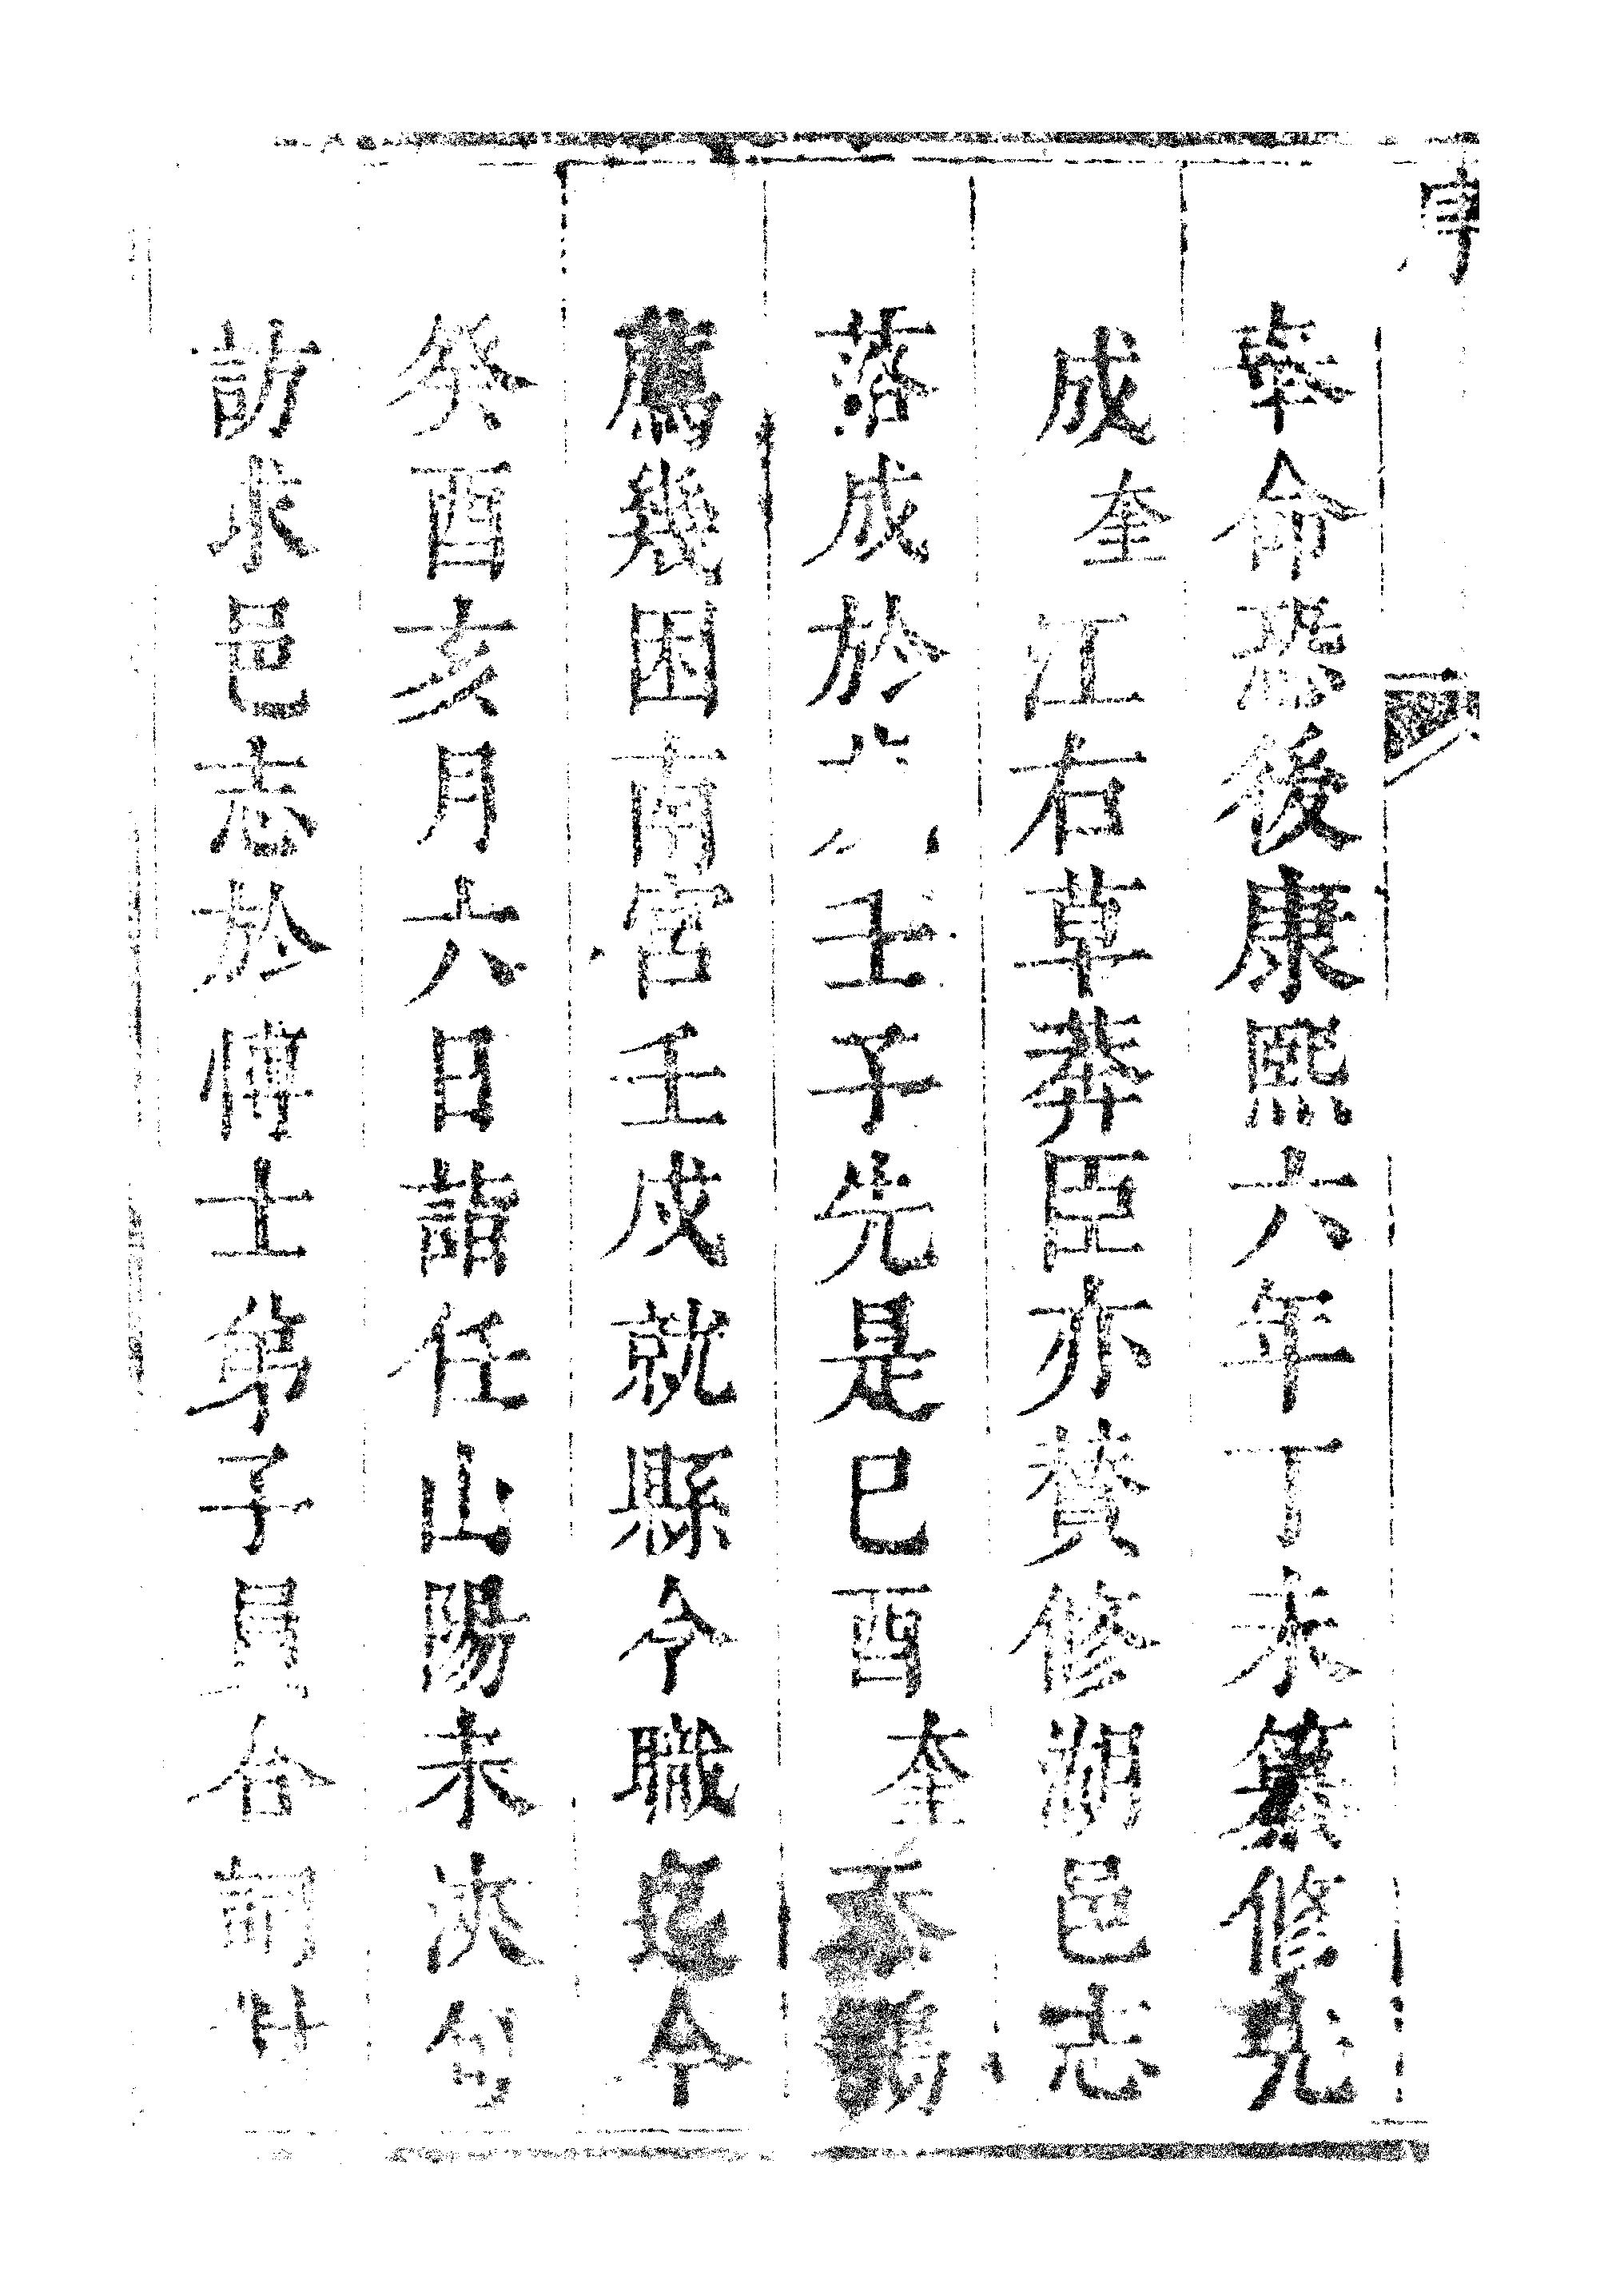 序
奉命恐後康熙六年丁未纂修先
成奎江右草莽臣亦賛修湖邑志
落成於壬子先是已酉奎忝鶚
薦幾困南宮壬戌就縣令職迄今
癸酉亥月六日詣任山陽未浹旬
訪求邑志於博士弟子員合詞